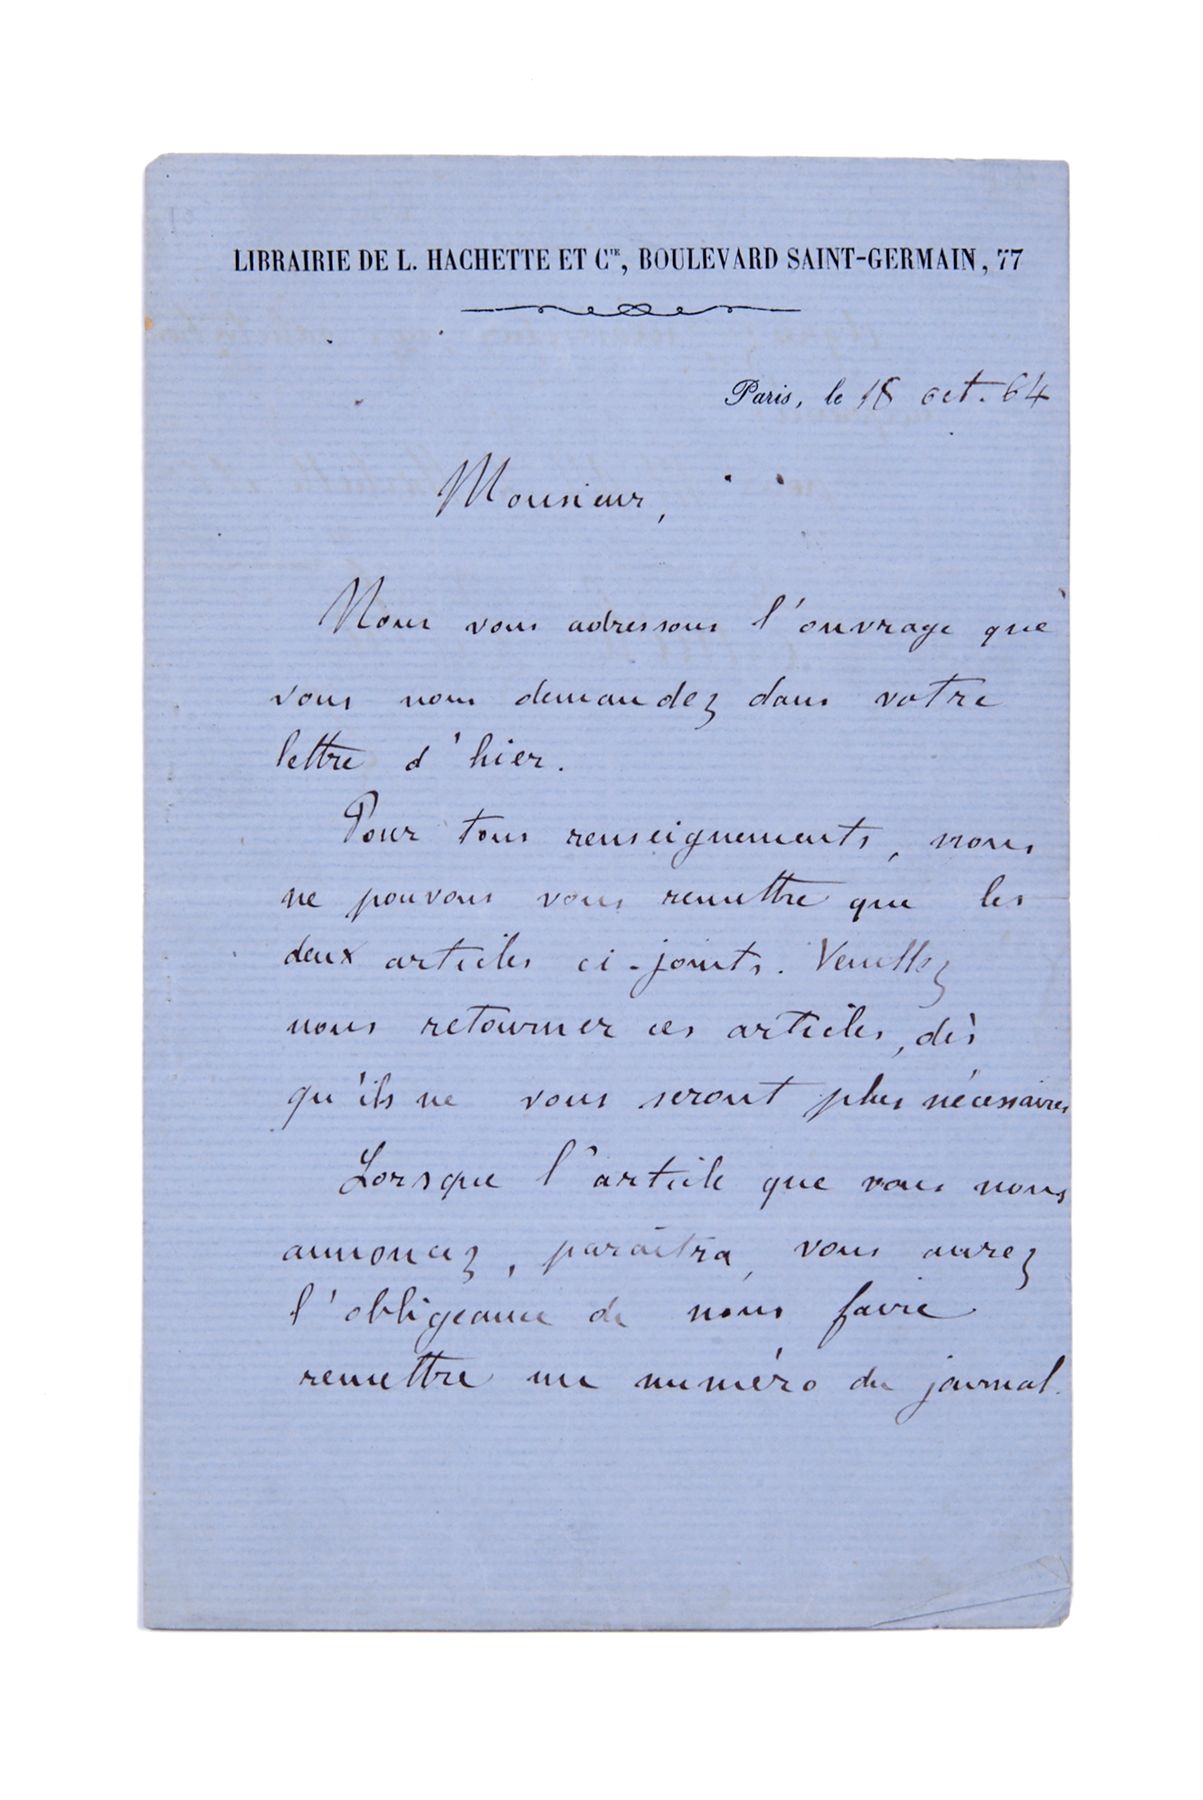 LIBRAIRIE DE L. HACHETTE ET Cie, BOULEVARD SAINT-GERMAIN, 77
Paris, le 18 oct. 64
Monsieur,
Nous vous adressons l'ouvrage que
vous nous demandez dans votre
lettre d'hier.
Pour tous renseignements, nous
ne pouvons vous remettre que les
deux articles ci-joints. Veuillez
nous retourner ces articles, dès
qu'ils ne vous seront plus nécessaires
Lorsque l'article que vous nous
annoncez, paraîtra, vous aurez
l'obligeance de nous faire
remettre un numéro du journal.